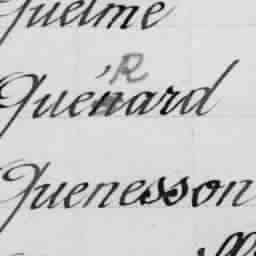 Quelme
R
Quénard
Quenesson